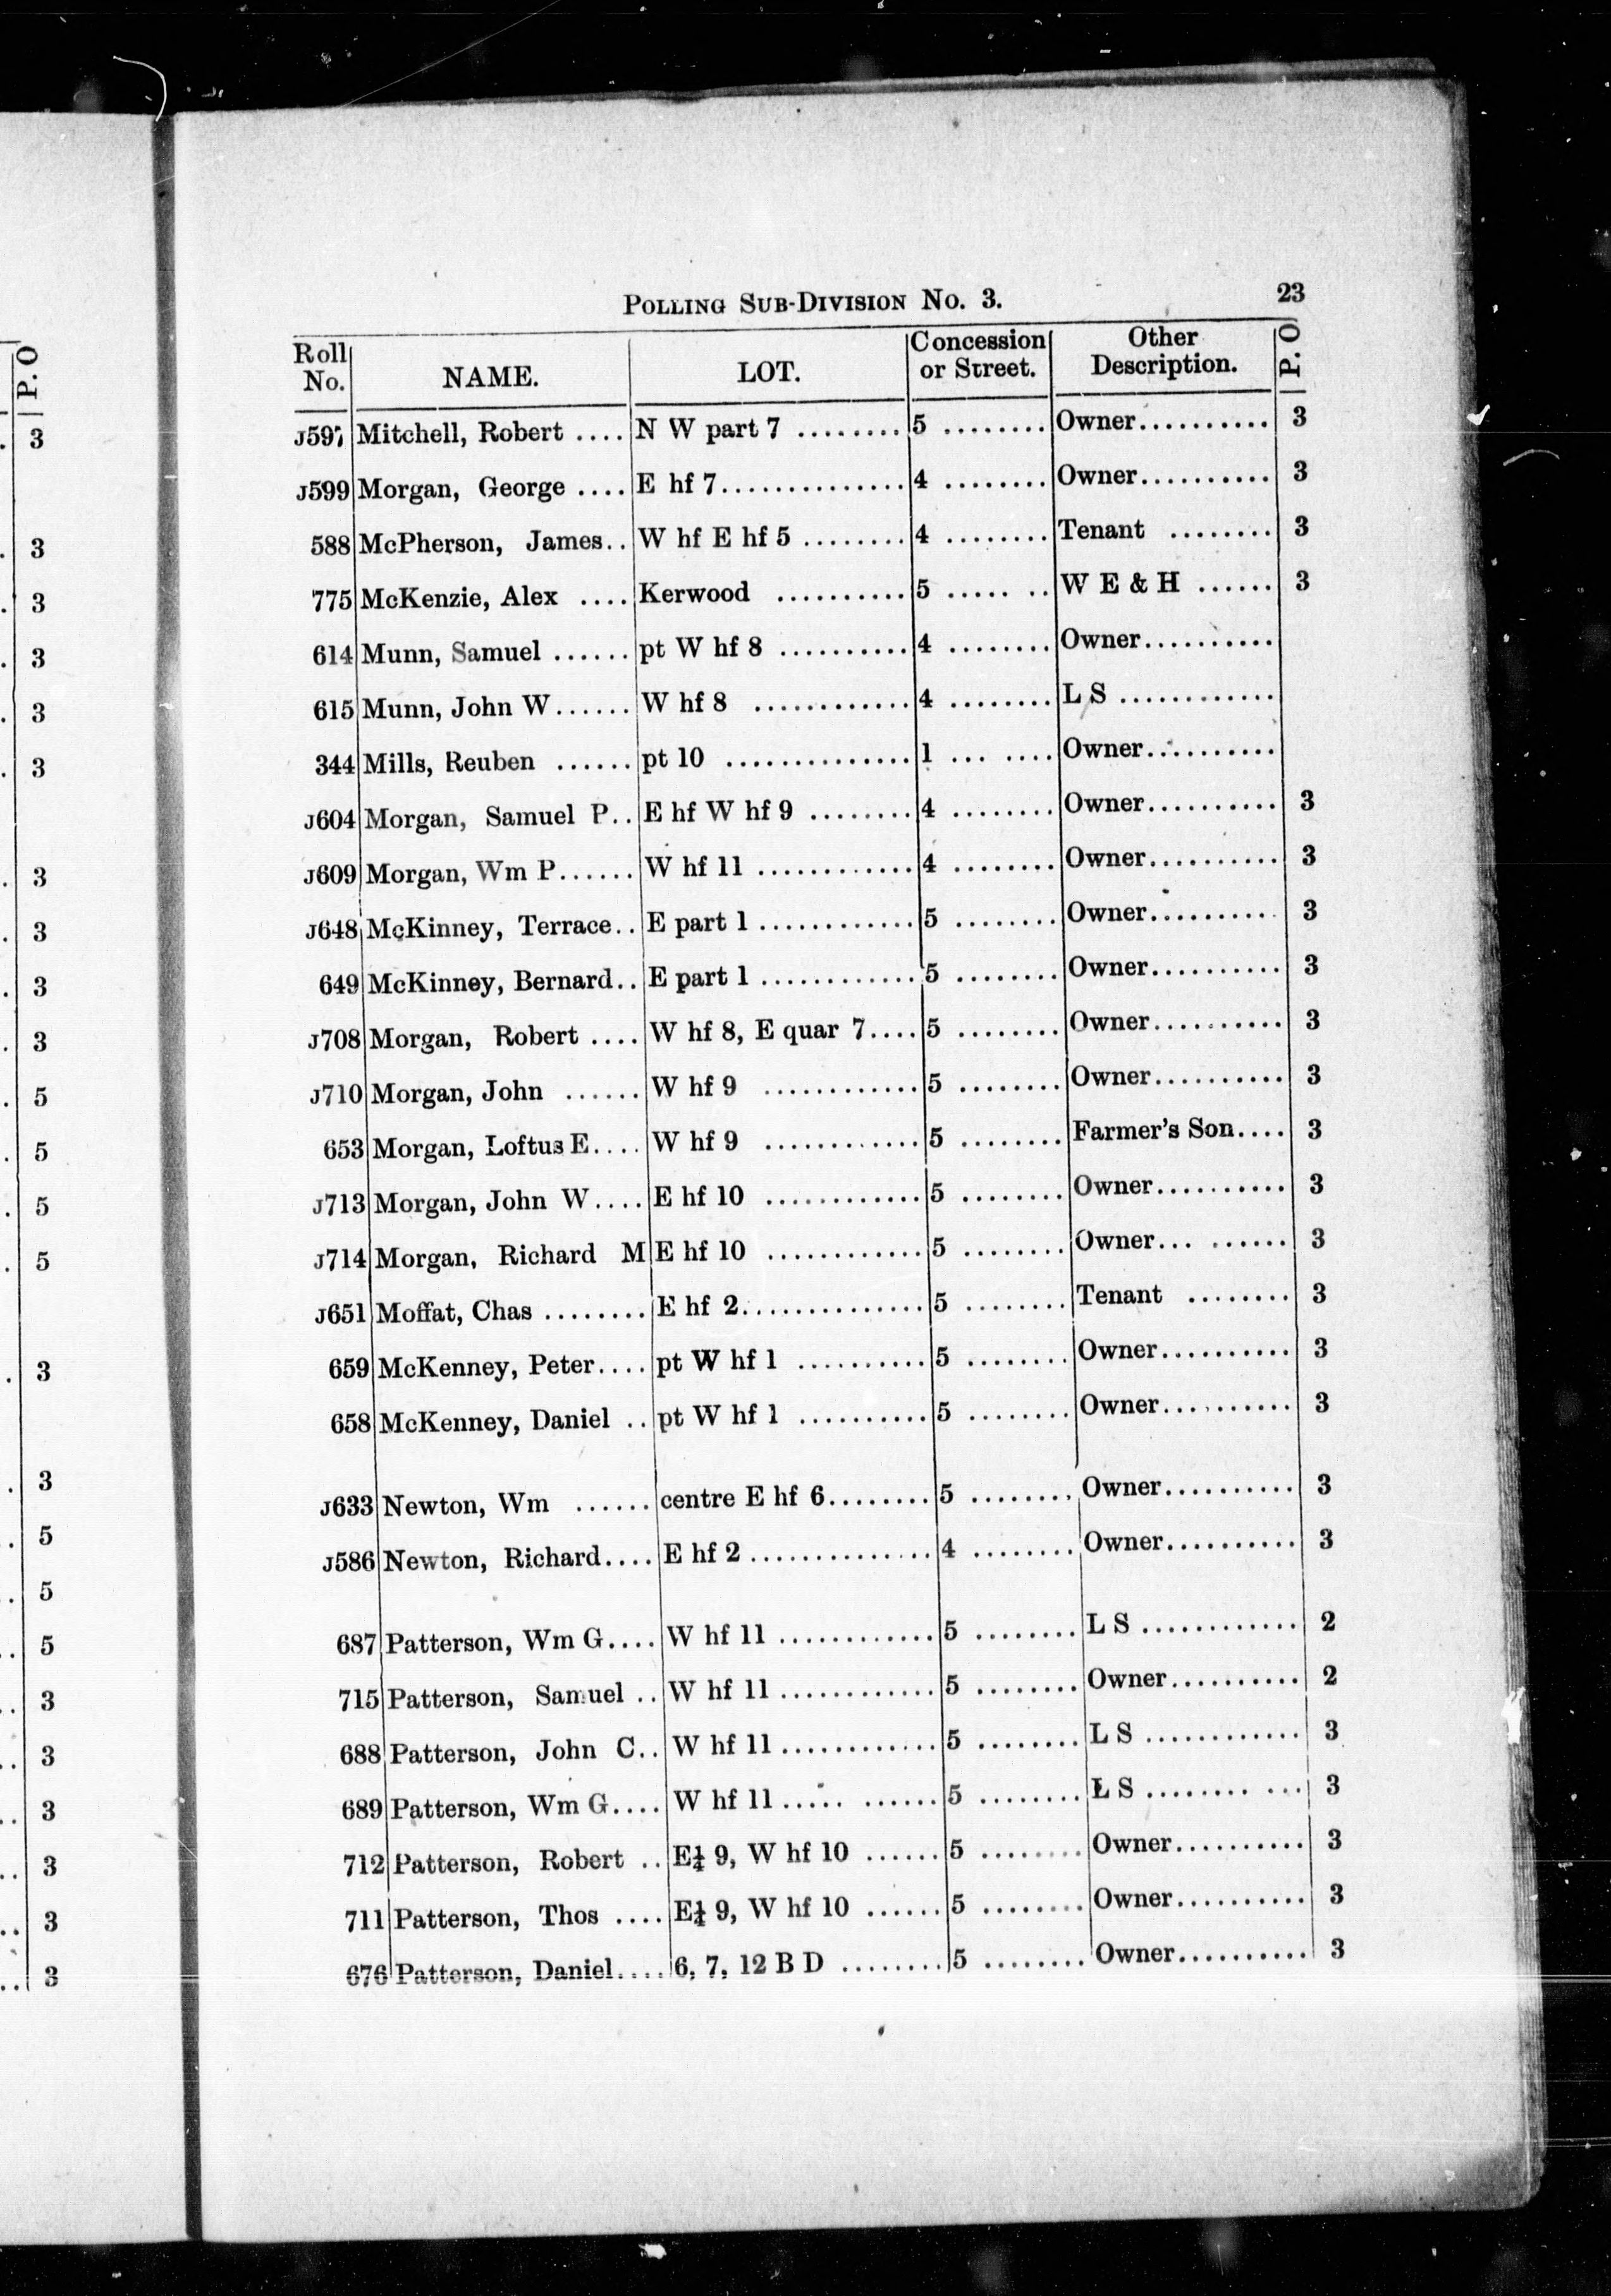 POLLING SUB-DIVISION No. 3. 23
Roll No. NAME. LOT. Concession or Street. Other Description. P. O
J597 Mitchell, Robert .... N W part 7 ........ 5 ........ Owner.......... 3
J599 Morgan, George .... E hf 7.............. 4 ........ Owner.......... 3
588 McPherson, James.. W hf E hf 5 ........ 4 ........ Tenant ........ 3
775 McKenzie, Alex .... Kerwood .......... 5 ..... .. W E & H ...... 3
614 Munn, Samuel ...... pt W hf 8 .......... 4 ........ Owner..........
615 Munn, John W...... W hf 8 ............ 4 ........ L S ............
344 Mills, Reuben ...... pt 10 .............. 1 ... .... Owner..........
J604 Morgan, Samuel P.. E hf W hf 9 ........ 4 ........ Owner.......... 3
J609 Morgan, Wm P...... W hf 11 ............ 4 ........ Owner.......... 3
J648 McKinney, Terrace.. E part 1 ............ 5 ........ Owner.......... 3
649 McKinney, Bernard.. E part 1 ............ 5 ........ Owner.......... 3
J708 Morgan, Robert .... W hf 8, E quar 7.... 5 ........ Owner.......... 3
J710 Morgan, John ...... W hf 9 ............ 5 ........ Owner.......... 3
653 Morgan, Loftus E.... W hf 9 ............ 5 ........ Farmer's Son.... 3
J713 Morgan, John W.... E hf 10 ............ 5 ........ Owner.......... 3
J714 Morgan, Richard M E hf 10 ............ 5 ........ Owner... ...... 3
J651 Moffat, Chas ........ E hf 2.............. 5 ........ Tenant ........ 3
659 McKenney, Peter.... pt W hf 1 .......... 5 ........ Owner.......... 3
658 McKenney, Daniel .. pt W hf 1 .......... 5 ........ Owner.......... 3
J633 Newton, Wm ...... centre E hf 6........ 5 ........ Owner.......... 3
J586 Newton, Richard.... E hf 2 .............. 4 ........ Owner.......... 3
687 Patterson, Wm G.... W hf 11 ............ 5 ........ L S ............ 2
715 Patterson, Samuel .. W hf 11 ............ 5 ........ Owner.......... 2
688 Patterson, John C.. W hf 11 ............ 5 ........ L S ............ 3
689 Patterson, Wm G.... W hf 11 ..... ...... 5 ........ L S ........ ... 3
712 Patterson, Robert .. E¼ 9, W hf 10 ...... 5 ........ Owner.......... 3
711 Patterson, Thos .... E¼ 9, W hf 10 ...... 5 ........ Owner.......... 3
676 Patterson, Daniel.... 6, 7, 12 B D ........ 5 ........ Owner.......... 3
P. O
3
3
3
3
3
3
3
3
3
3
5
5
5
5
3
3
5
5
5
3
3
3
3
3
3